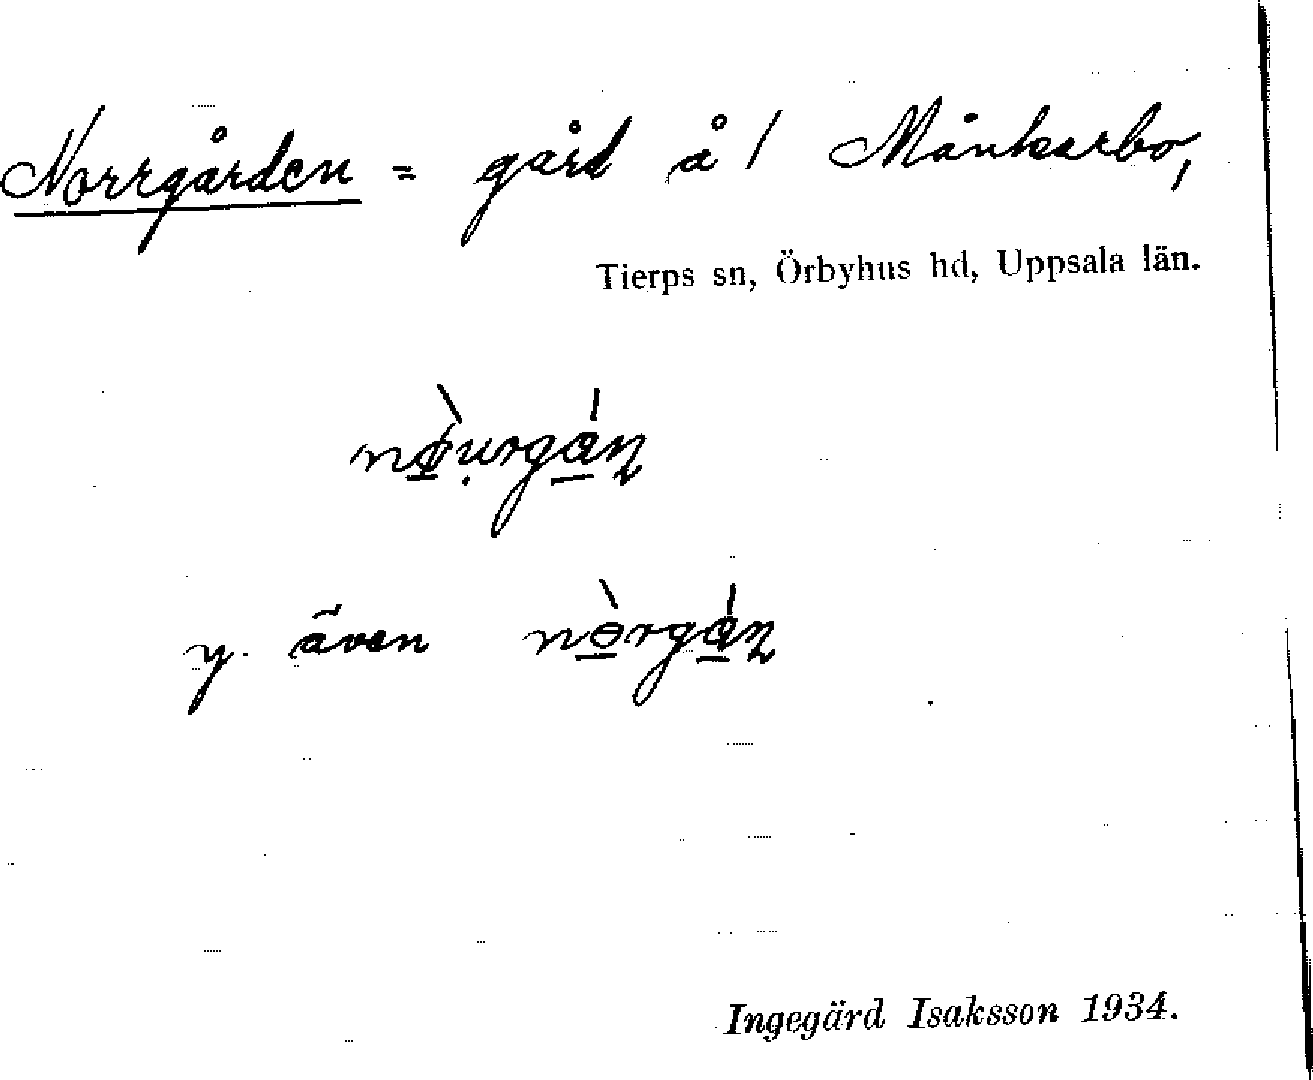 Norrgården = gård å 1 Månkarbo,
Tierps sn, Örbyhus hd, Uppsala län.
y. även
Ingegärd Isaksson 1934.